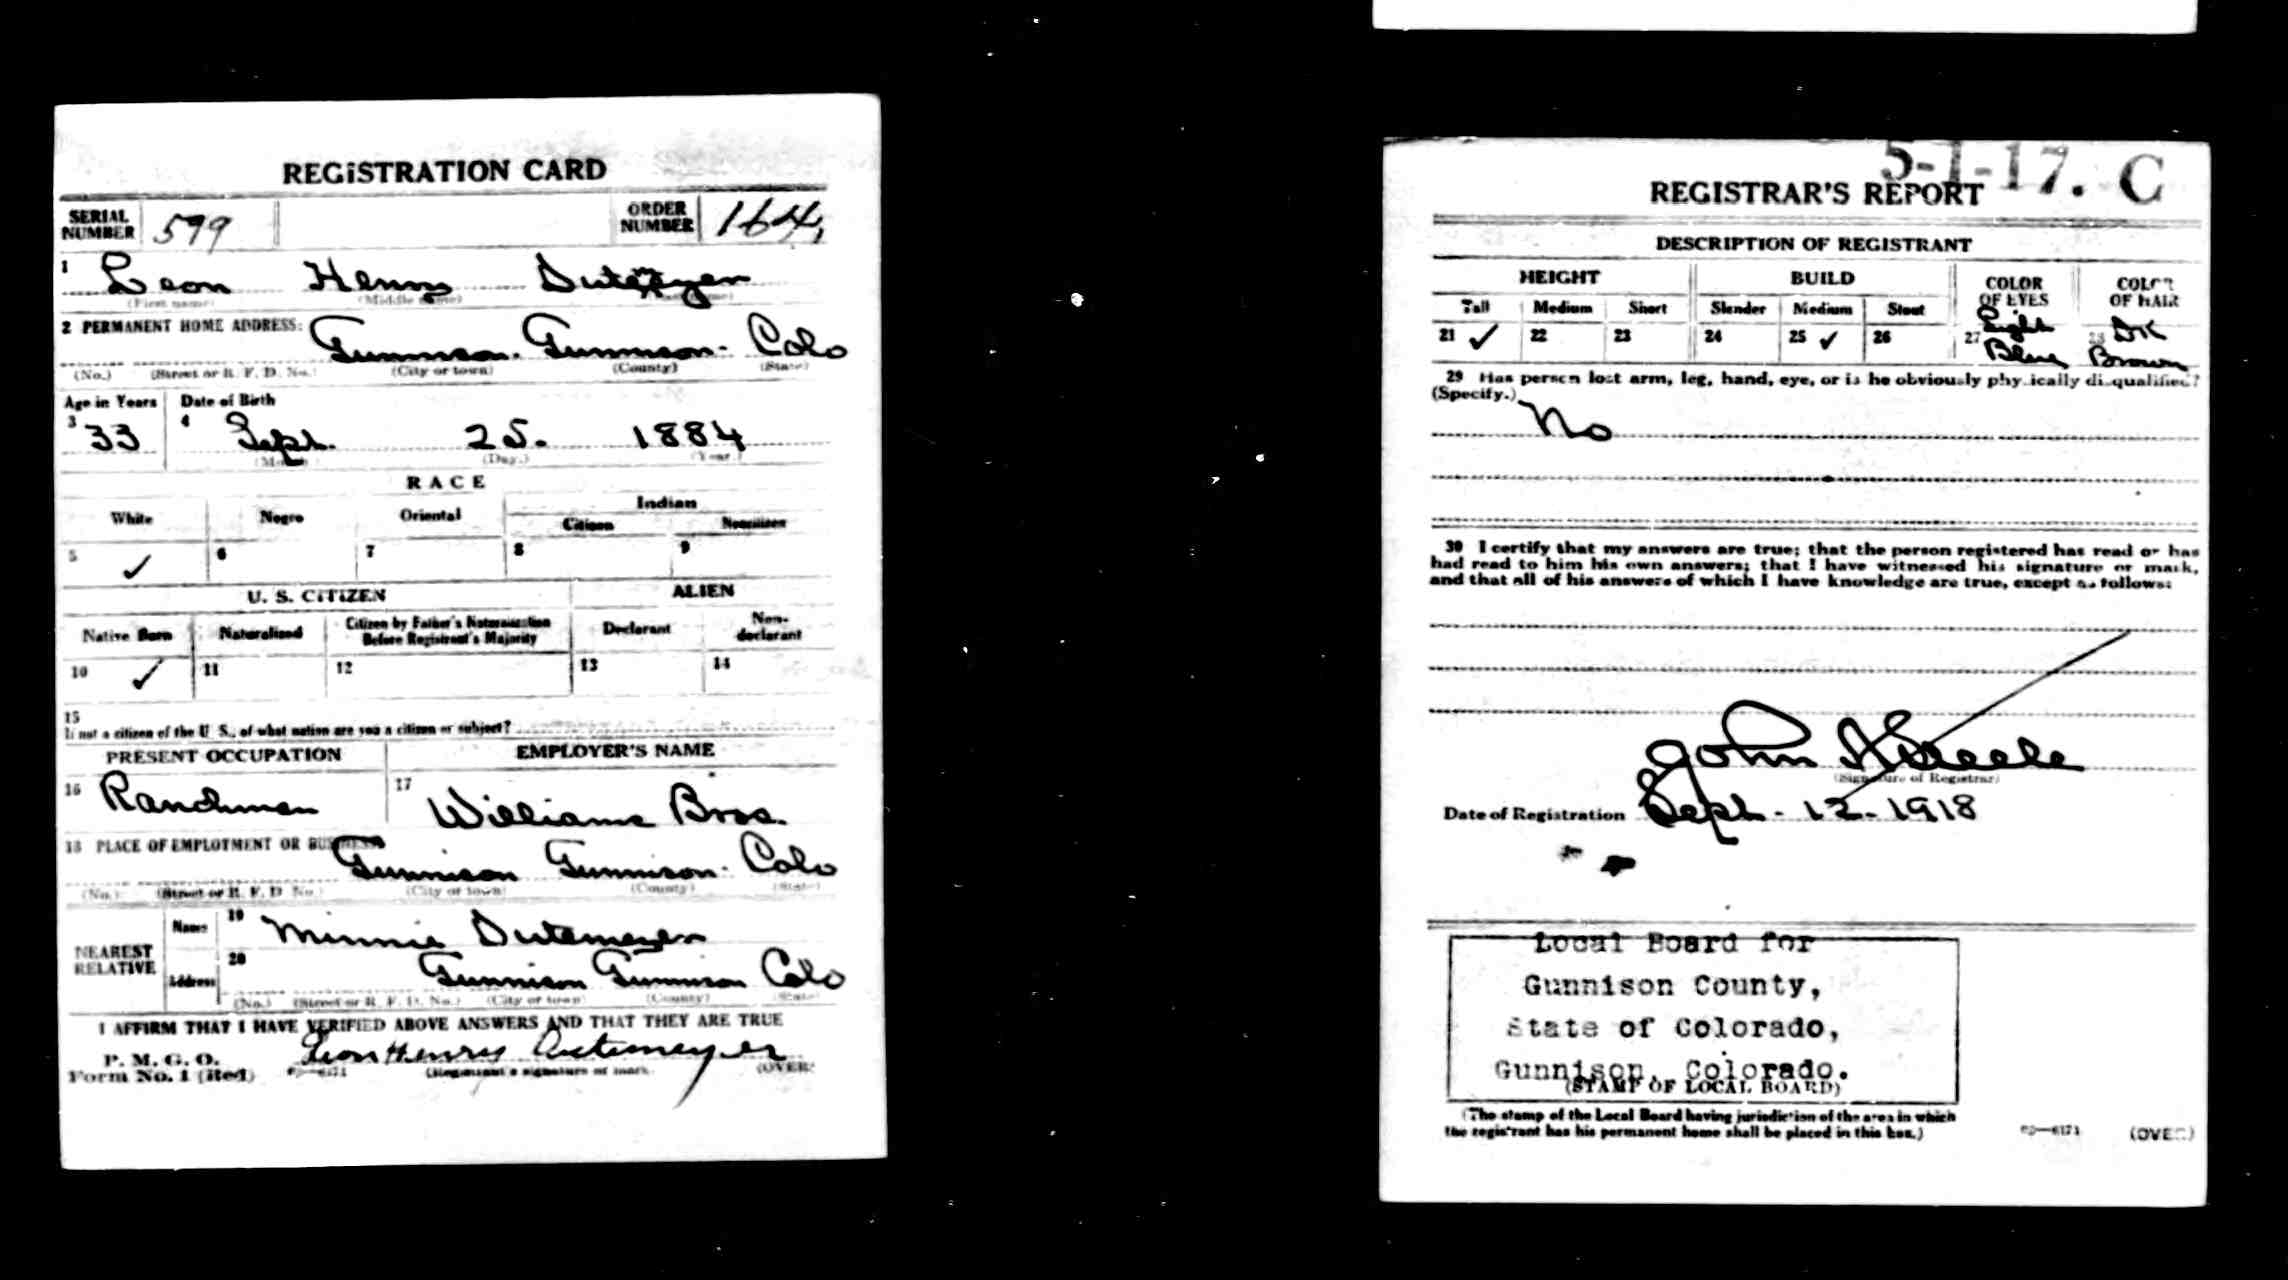 REGISTRATION CARD
SERIAL NUMBER 599 ORDER NUMBER 164
1 Leon Henry Dutemeyer
(First name) (Middle name) (Last name)
2 PERMANENT HOME ADDRESS:
Gunnison. Gunnison. Colo
(No.) (Street or R. F. D. No.) (City or town) (County) (State)
Age in Years Date of Birth
3 33 4 Sept. 25. 1884
(Month) (Day.) (Year.)
RACE
White Negro Oriental Indian
Citizen Noncitizen
5 ✓ 6 7 8 9
U. S. CITIZEN ALIEN
Native Born Naturalized Citizen by Father's Naturalization Before Registrant's Majority Declarant Non-declarant
10 ✓ 11 12 13 14
15
If not a citizen of the U. S., of what nation are you a citizen or subject?
PRESENT OCCUPATION EMPLOYER'S NAME
16 Ranchman 17 Williams Bros.
18 PLACE OF EMPLOYMENT OR BUSINESS
Gunnison Gunnison. Colo
(No.) (Street or R. F. D. No.) (City or town) (County) (State)
NEAREST RELATIVE
Name 19 Minnie Dutemeyer
Address 20 Gunnison Gunnison Colo
(No.) (Street or R. F. D. No.) (City or town) (County) (State)
I AFFIRM THAT I HAVE VERIFIED ABOVE ANSWERS AND THAT THEY ARE TRUE
P. M. G. O.
Form No. 1 (Red) Leon Henry Dutemeyer
(Registrant's signature or mark) (OVER)
5-1-17. C
REGISTRAR'S REPORT
DESCRIPTION OF REGISTRANT
HEIGHT BUILD COLOR OF EYES COLOR OF HAIR
Tall Medium Short Slender Medium Stout
21 ✓ 22 23 24 25 ✓ 26 27 Light Blue 28 DK Brown
29 Has person lost arm, leg, hand, eye, or is he obviously physically disqualified?
(Specify.)
No
30 I certify that my answers are true; that the person registered has read or has
had read to him his own answers; that I have witnessed his signature or mark,
and that all of his answers of which I have knowledge are true, except as follows:
John A Steele
(Signature of Registrar)
Date of Registration Sept - 12 - 1918
Local Board for
Gunnison County,
State of Colorado,
Gunnison, Colorado.
(STAMP OF LOCAL BOARD)
(The stamp of the Local Board having jurisdiction of the area in which
the registrant has his permanent home shall be placed in this box.)
(OVER)